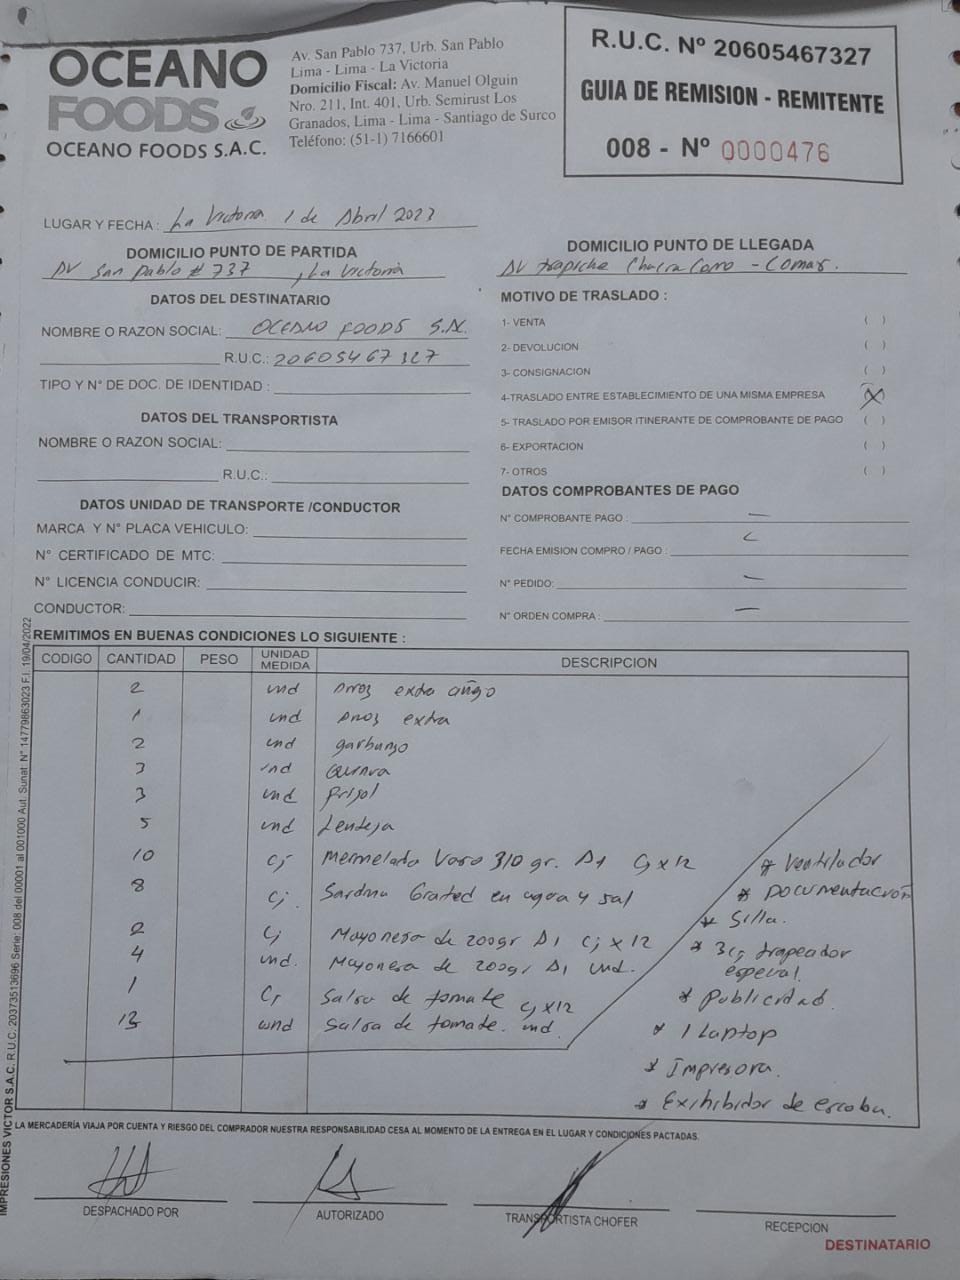 OCEANO
FOODS
OCEANO FOODS S.A.C.
Av. San Pablo 737, Urb. San Pablo
Lima - Lima - La Victoria
Domicilio Fiscal: Av. Manuel Olguin
Nro. 211, Int. 401, Urb. Semirust Los
Granados, Lima - Lima - Santiago de Surco
Teléfono: (51-1) 7166601
R.U.C. Nº 20605467327
GUIA DE REMISION - REMITENTE
008 - Nº 0000476
LUGAR Y FECHA : La Victoria 1 de Abril 2023
DOMICILIO PUNTO DE PARTIDA
AV San Pablo # 737 , La Victoria
DOMICILIO PUNTO DE LLEGADA
AV trapiche Chacra Cerro - Comas.
DATOS DEL DESTINATARIO
NOMBRE O RAZON SOCIAL: OCEANO FOODS S.AC.
R.U.C.: 20605467327
TIPO Y N° DE DOC. DE IDENTIDAD :
DATOS DEL TRANSPORTISTA
NOMBRE O RAZON SOCIAL:
R.U.C.:
DATOS UNIDAD DE TRANSPORTE /CONDUCTOR
MARCA Y N° PLACA VEHICULO:
N° CERTIFICADO DE MTC:
N° LICENCIA CONDUCIR:
CONDUCTOR:
MOTIVO DE TRASLADO :
1- VENTA ( )
2- DEVOLUCION ( )
3- CONSIGNACION ( )
4-TRASLADO ENTRE ESTABLECIMIENTO DE UNA MISMA EMPRESA (X)
5- TRASLADO POR EMISOR ITINERANTE DE COMPROBANTE DE PAGO ( )
6- EXPORTACION ( )
7- OTROS ( )
DATOS COMPROBANTES DE PAGO
N° COMPROBANTE PAGO : —
FECHA EMISION COMPRO / PAGO :
N° PEDIDO: —
N° ORDEN COMPRA : —
REMITIMOS EN BUENAS CONDICIONES LO SIGUIENTE :
CODIGO CANTIDAD PESO UNIDAD MEDIDA DESCRIPCION
2 und Arroz extra añejo
1 und Arroz extra
2 und garbanzo
3 und Quinua
3 und frijol
5 und Lenteja
10 Cj Mermelada Vaso 310 gr. A1 Cj x 12
8 Cj. Sardina Grated en agua y sal
2 Cj Mayonesa de 200gr A1 Cj x 12
4 und. Mayonesa de 200gr A1 und.
1 Cj Salsa de tomate Cj x12
13 und Salsa de tomate. und.
* Ventilador
* Documentación
* Silla.
* 3 Cj trapeador
especial
* Publicidad.
* 1 Laptop
* Impresora.
* Exihibidor de escoba.
LA MERCADERÍA VIAJA POR CUENTA Y RIESGO DEL COMPRADOR NUESTRA RESPONSABILIDAD CESA AL MOMENTO DE LA ENTREGA EN EL LUGAR Y CONDICIONES PACTADAS.
DESPACHADO POR
AUTORIZADO
TRANSPORTISTA CHOFER
RECEPCION
DESTINATARIO
IMPRESIONES VICTOR S.A.C. R.U.C. 20373513696 Serie: 008 del 00001 al 001000 Aut. Sunat: N° 14779863023 F.I. 19/04/2022